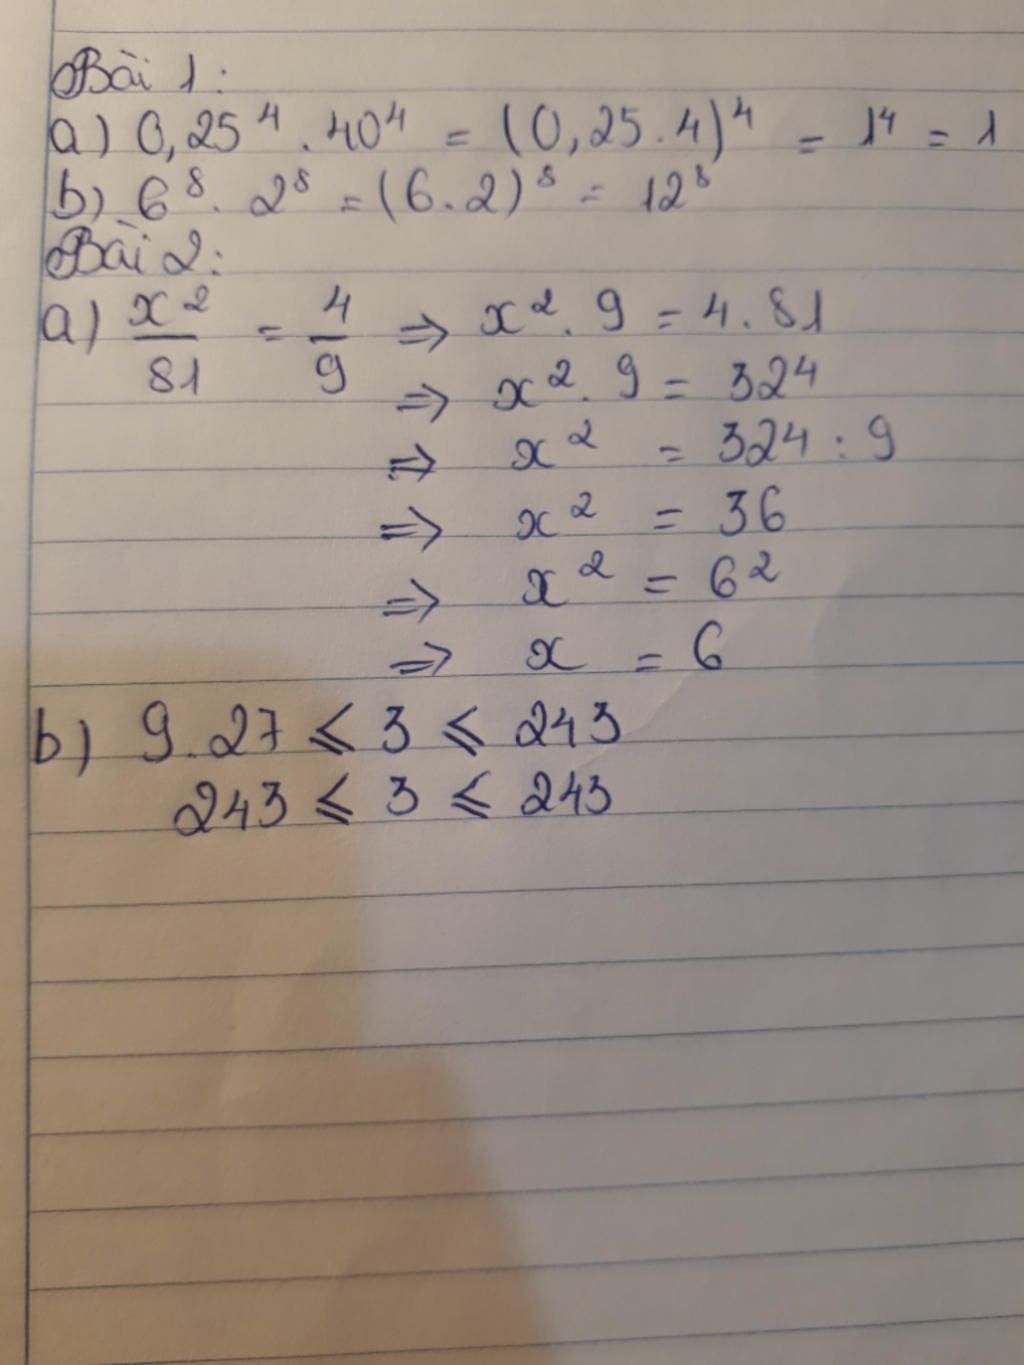 Bài 1:
a) 0,25⁴ . 40⁴ = (0,25.4)⁴ = 1⁴ = 1
b) 6⁸ . 2⁸ = (6.2)⁸ = 12⁸
Bài 2:
a) x²/81 = 4/9 ⇒ x² . 9 = 4.81
⇒ x² . 9 = 324
⇒ x² = 324 : 9
⇒ x² = 36
⇒ x² = 6²
⇒ x = 6
b) 9.27 ⩽ 3 ⩽ 243
243 ⩽ 3 ⩽ 243